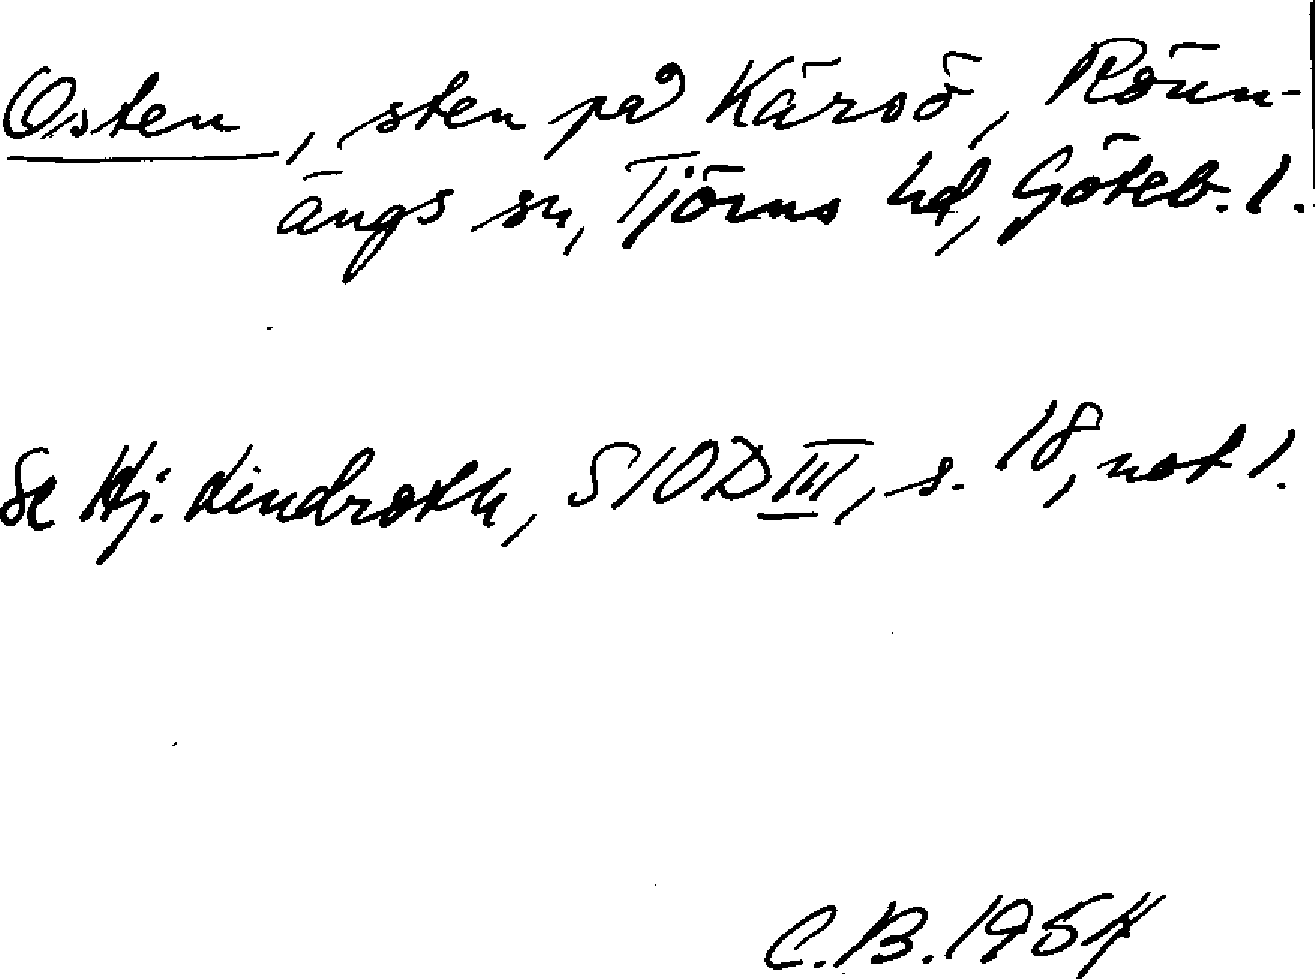 Osten, sten på Kärsö, Rönn-
ängs sn, Tjörns hd, Göteb. l.
Se Hj. Lindroth, SIOD III, s. 18, not 1.
C.B. 1954